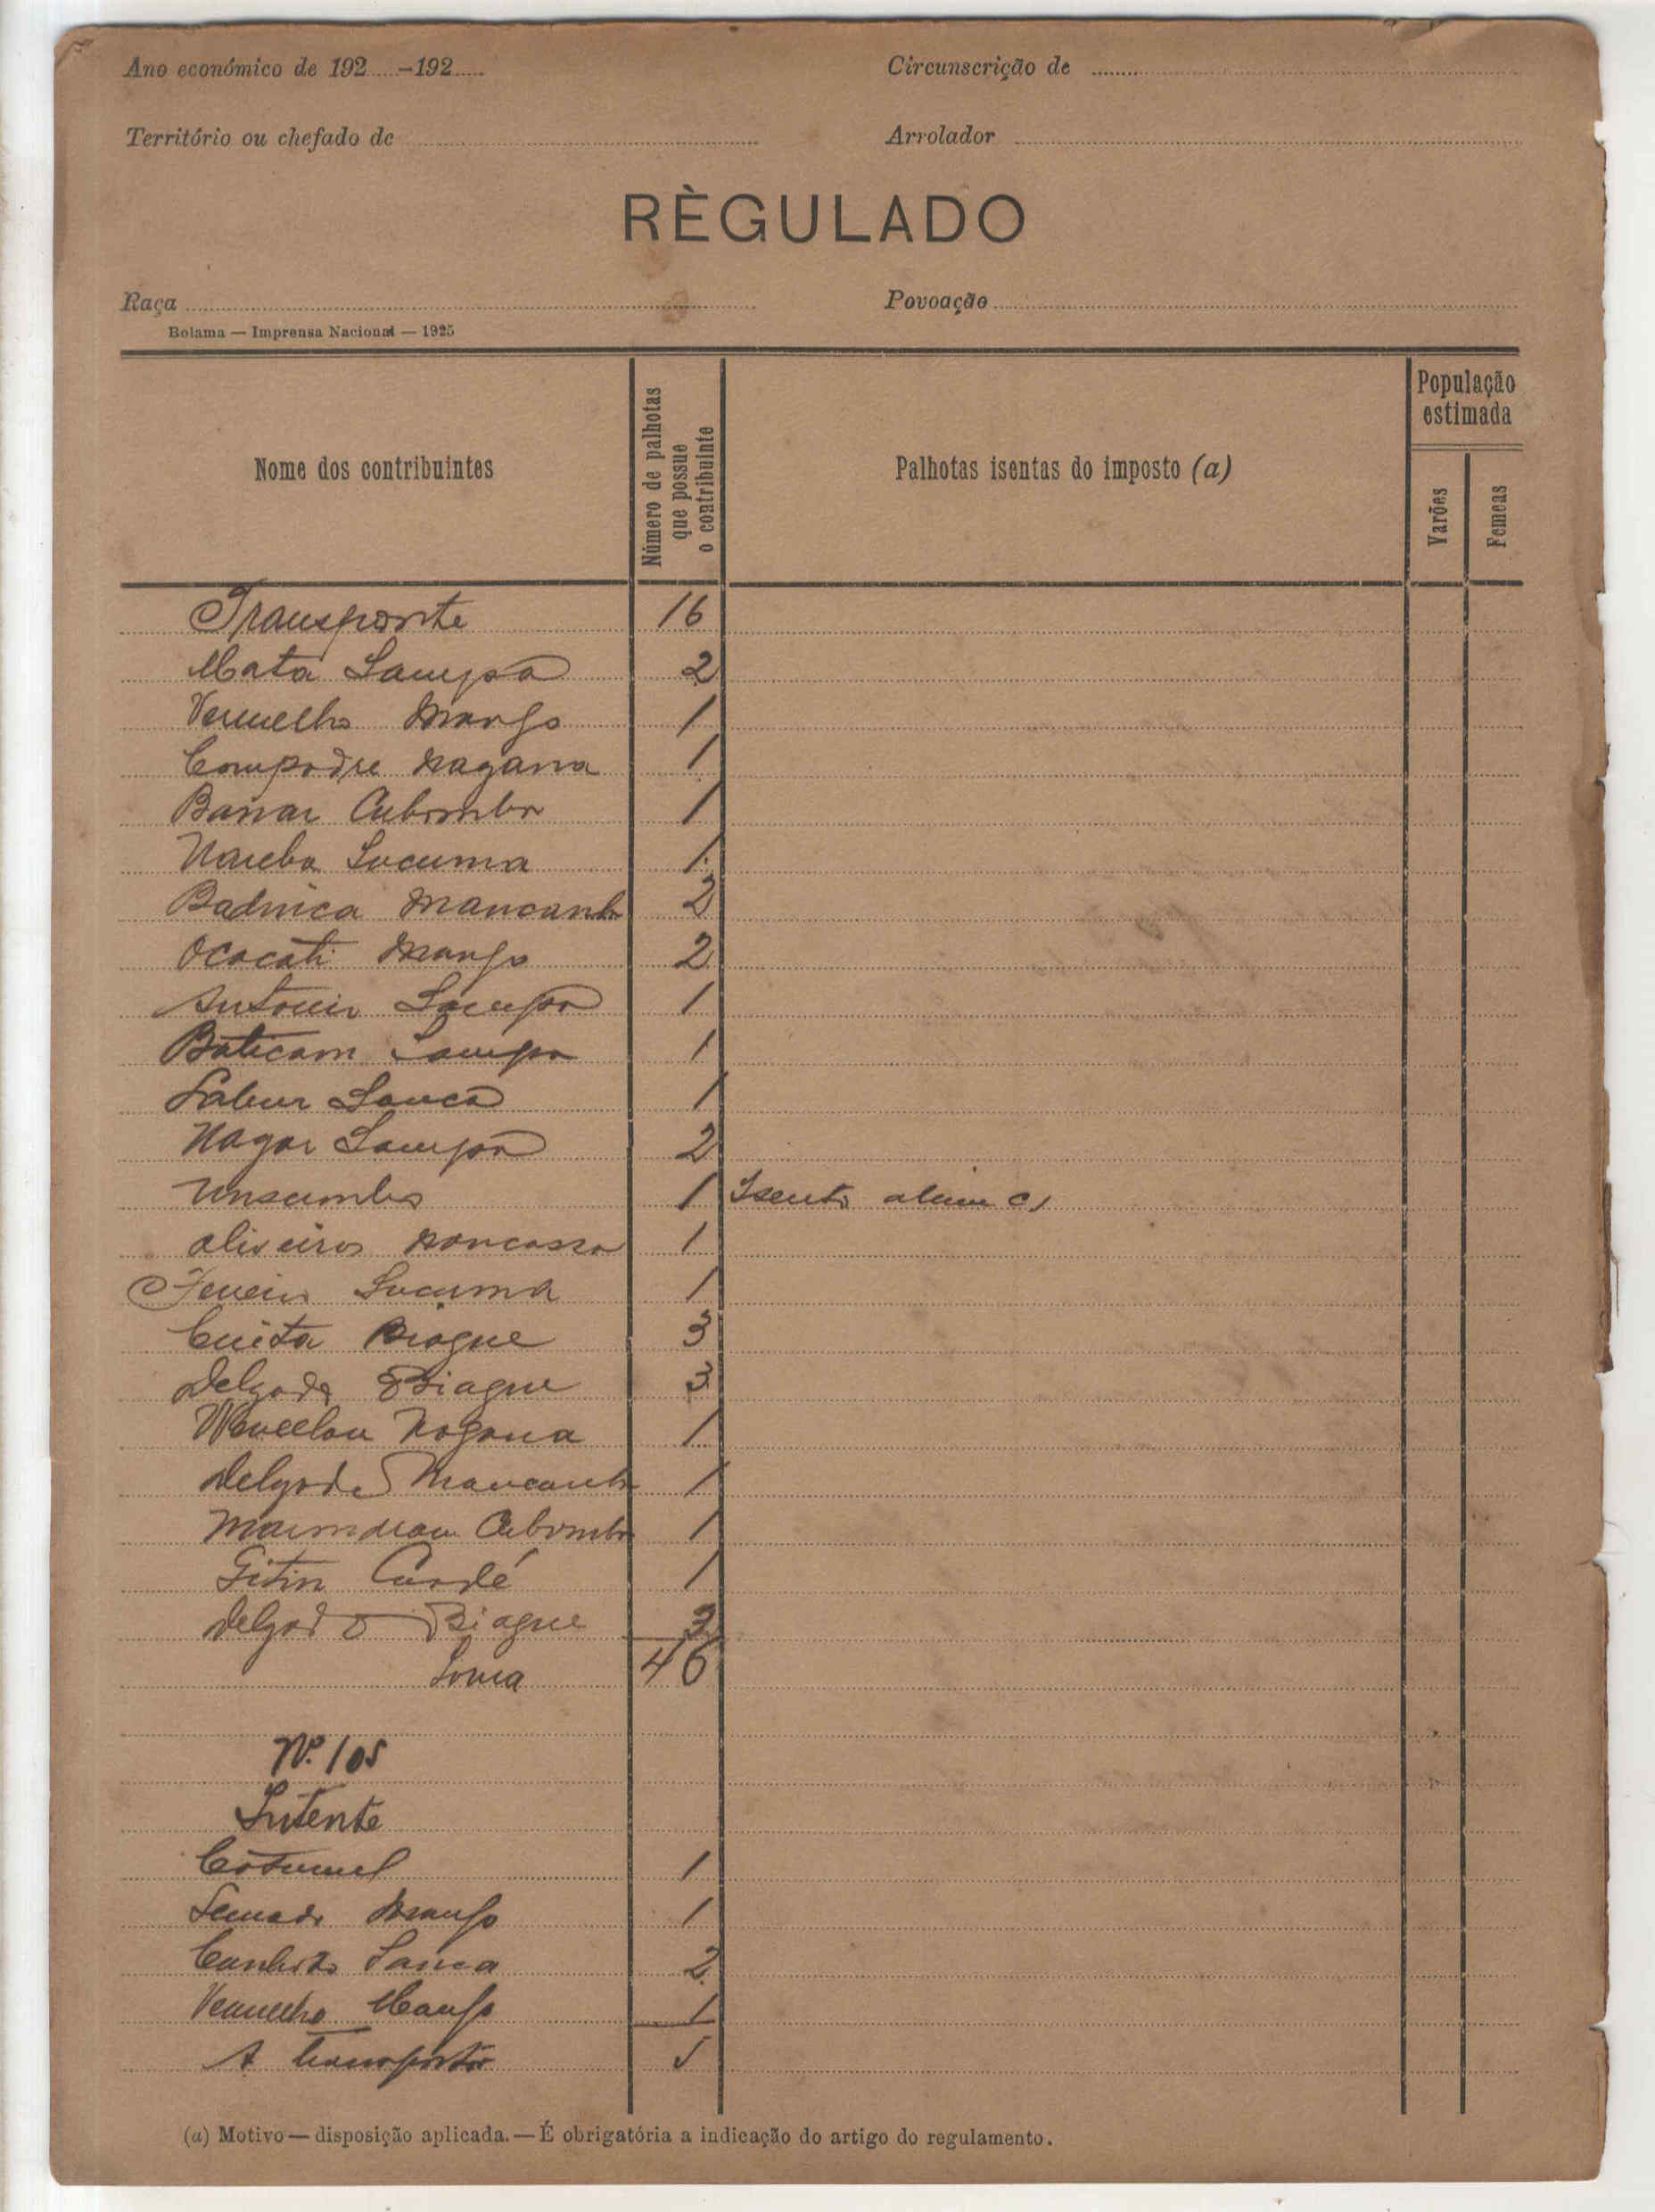 Ano económico de 192 -192
Circunscrição de
Território ou chefado de
Arrolador
RÈGULADO
Raça
Povoação
Bolama — Imprensa Nacional — 1925
Nome dos contribuintes
Número de palhotas que possue o contribuinte
Palhotas isentas do imposto (a)
População estimada
Varões
Femeas
Transporte 16
Mata Sampa 2
Vermelho Manfo 1
Compadre Nagana 1
Banar Cubombo 1
Sucuma 1
Badnica Mancanh 2
Ococati Manfo 2
Antonio Sampa 1
Baticam Sampa 1
Sanca 1
Nagar Sampa 2
1 Isento alinea c)
Oliveiros 1
Sucuma 1
Cuita Biague 3
Delgado Biague 3
Nagana 1
Delgado Mancanh 1
Cubombo 1
Gitin Candé 1
Delgado Biague 3
Soma 46
Nº 105
Intente
1
Manfo 1
Sanca 2
Vermelho Manfo 1
A transportar 5
(a) Motivo — disposição aplicada. — É obrigatória a indicação do artigo do regulamento.